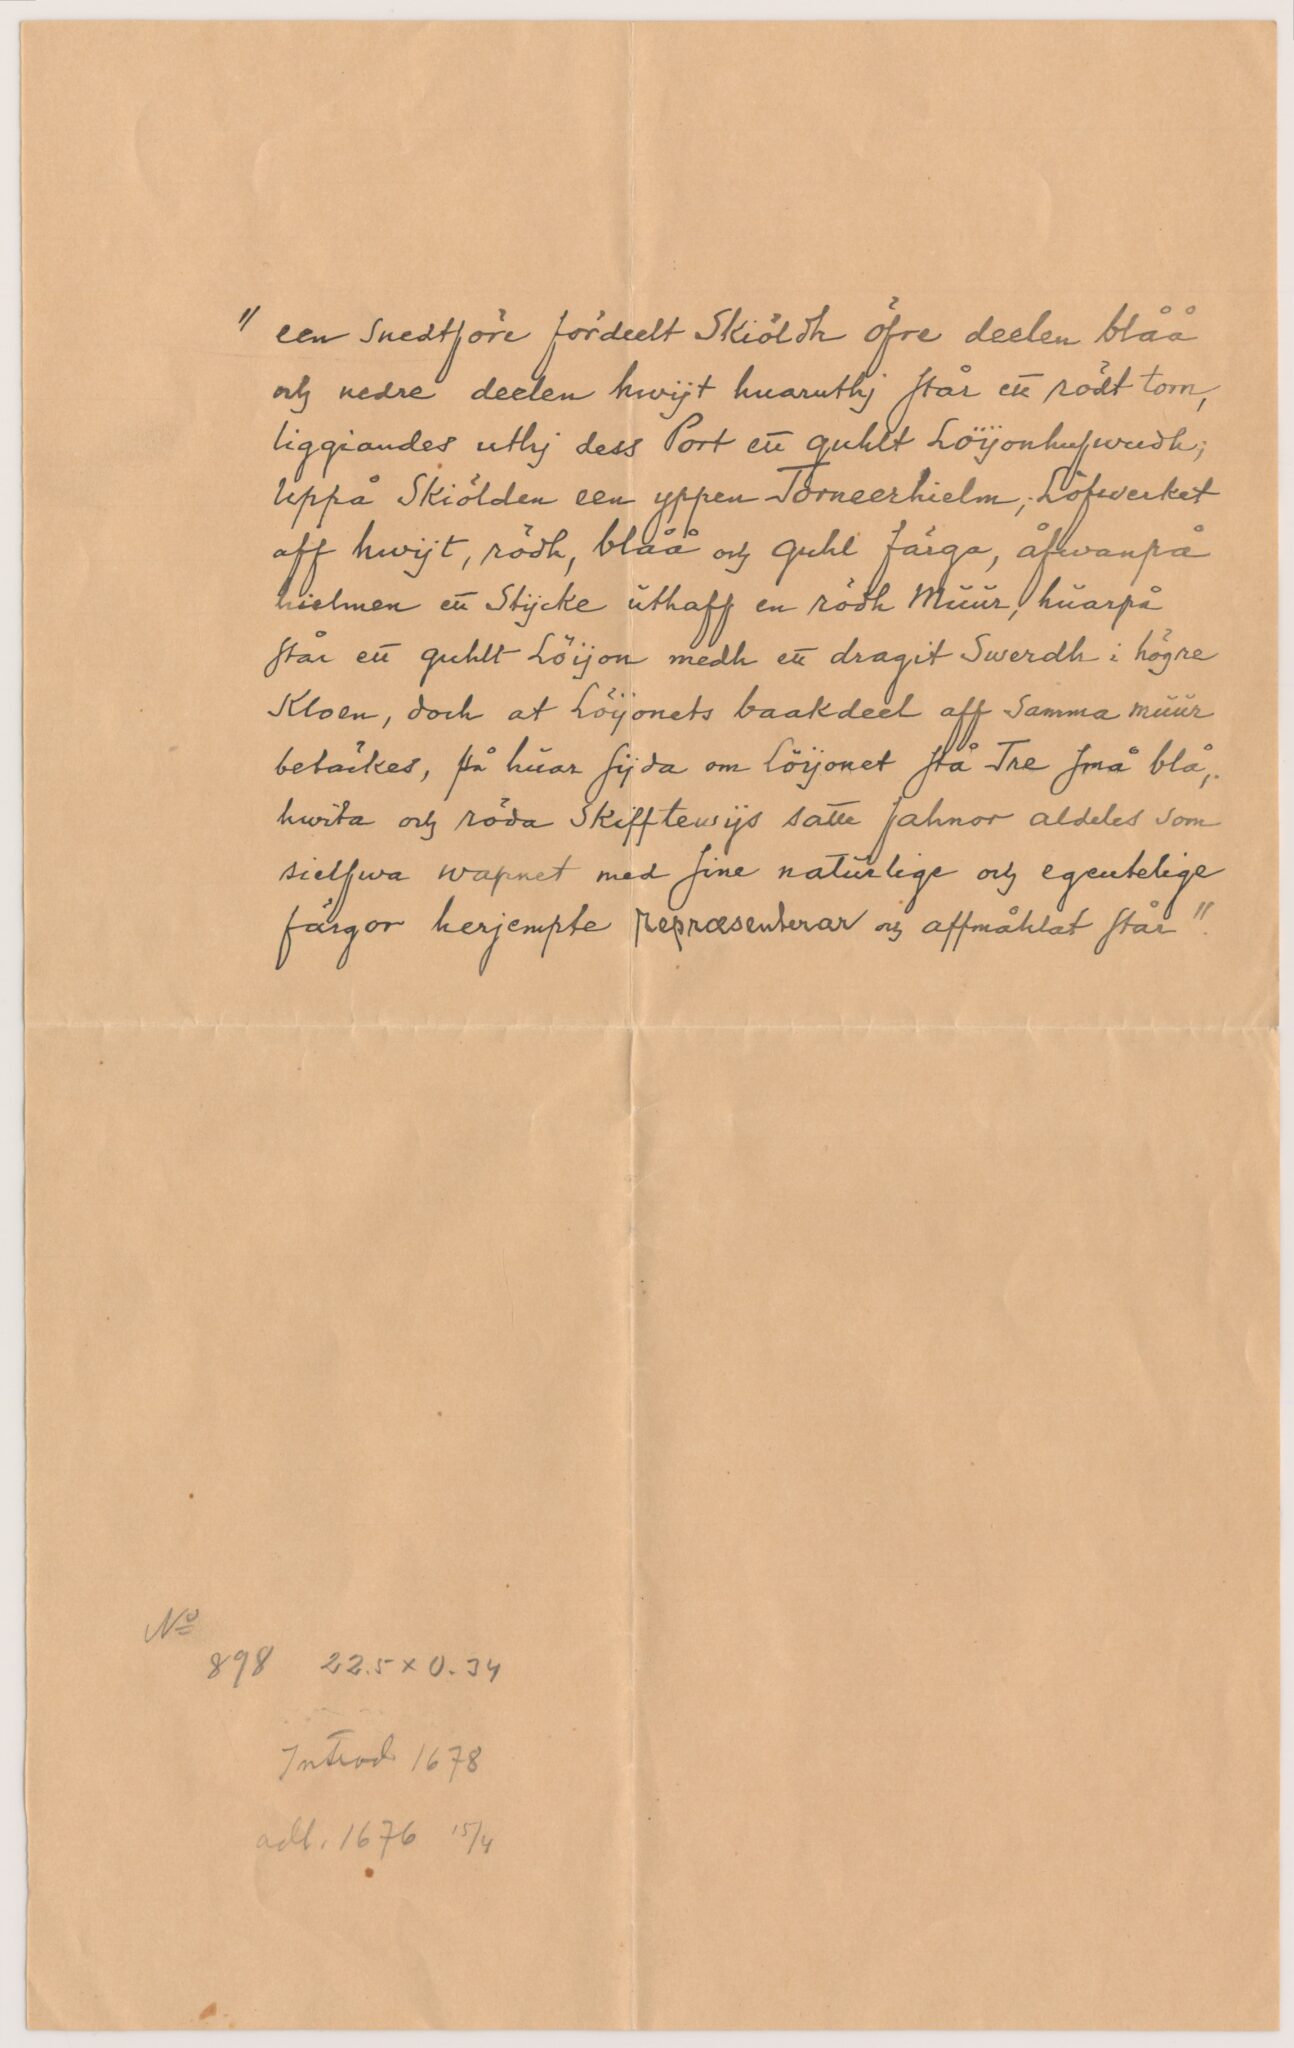 " een snedtföre fördeelt Skiöldh öfre deelen blåå
och nedre deelen hwijt huaruthj står ett rödt torn,
liggiandes uthj dess Port ett guhlt Löijonhufwudh;
Uppå Skiölden een yppen Torneerhielm, Löfwerket
aff hwijt, rödh, blåå och guhl färga, åfwanpå
hielmen ett Stijcke uthaff en rödh Muur, huarpå
står ett guhlt Löijon medh ett dragit Swerdh i högre
Kloen, doch at Löijonets baakdeel aff samma muur
betäckes, på huar sijda om Löijonet stå Tre små blå,
hwita och röda Skifftewijs satte fahnor aldeles som
sielfwa wapnet med sine naturlige och egentelige
färgor herjempte repræsenterar och affmåhlat står".
No
898 22.5 × 0.34
Introd 1678
adl. 1676 15/4